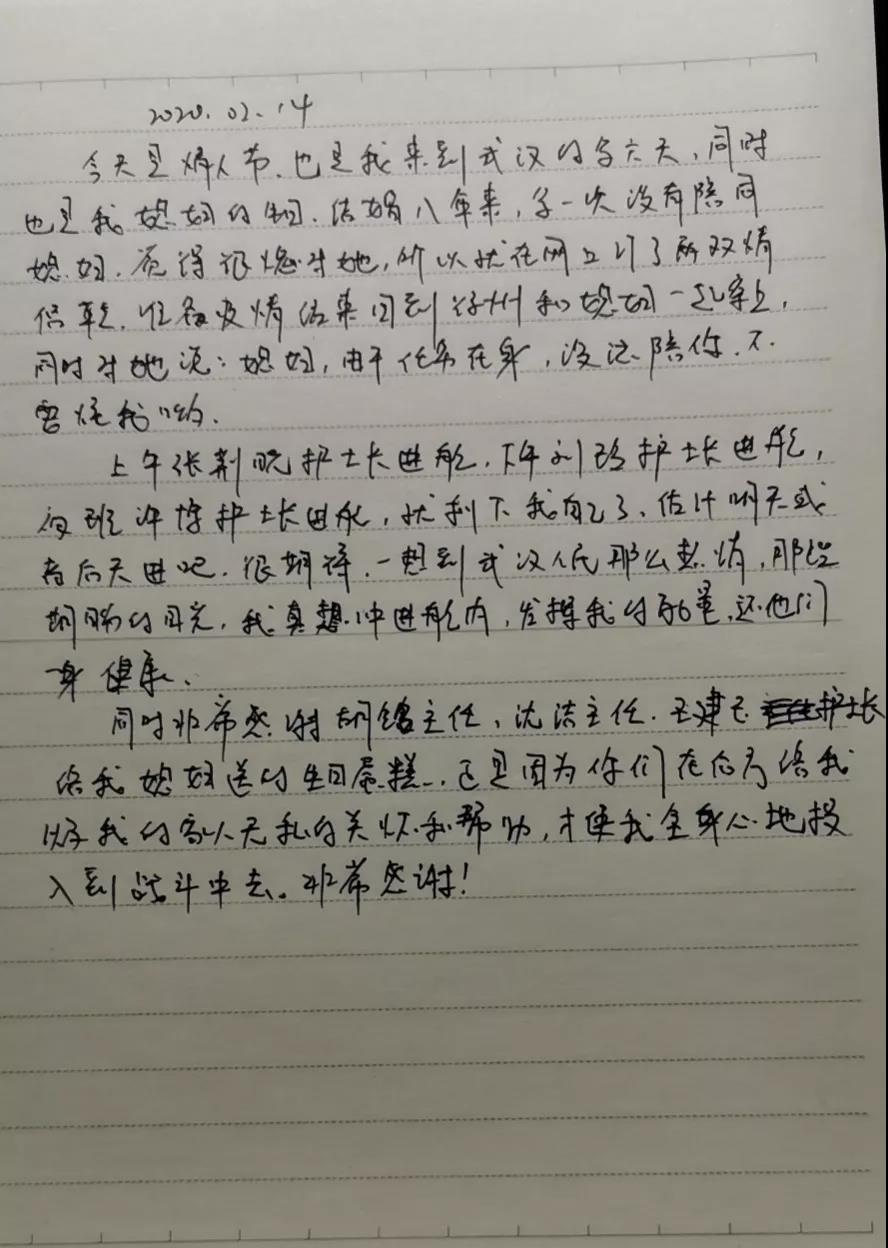 2020.02.14
今天是情人节.也是我来到武汉的第六天,同时
也是我媳妇的生日.结婚八年来,第一次没有陪同
媳妇.觉得很愧对她,所以就在网上订了两双情
侣鞋.准备疫情结束回到徐州和媳妇一起穿上,
同时对她说:媳妇,由于任务在身,没法陪你.不
要怪我哟.
上午张荆晓护士长进舱.下午刘玲护士长进舱,
夜班许博护士长进舱,就剩下我自己了、估计明天或
者后天进吧.很期待.一想到武汉人民那么热情,那些
期盼的目光,我真想冲进舱内,发挥我的能量,还他们
身健康、
同时非常感谢胡主任、沈洁主任.护士长
给我媳妇送的生日蛋糕.正是因为你们在后方给我
及我的家人无私的关怀和帮助,才使我全身心地投
入到战斗中去。非常感谢!